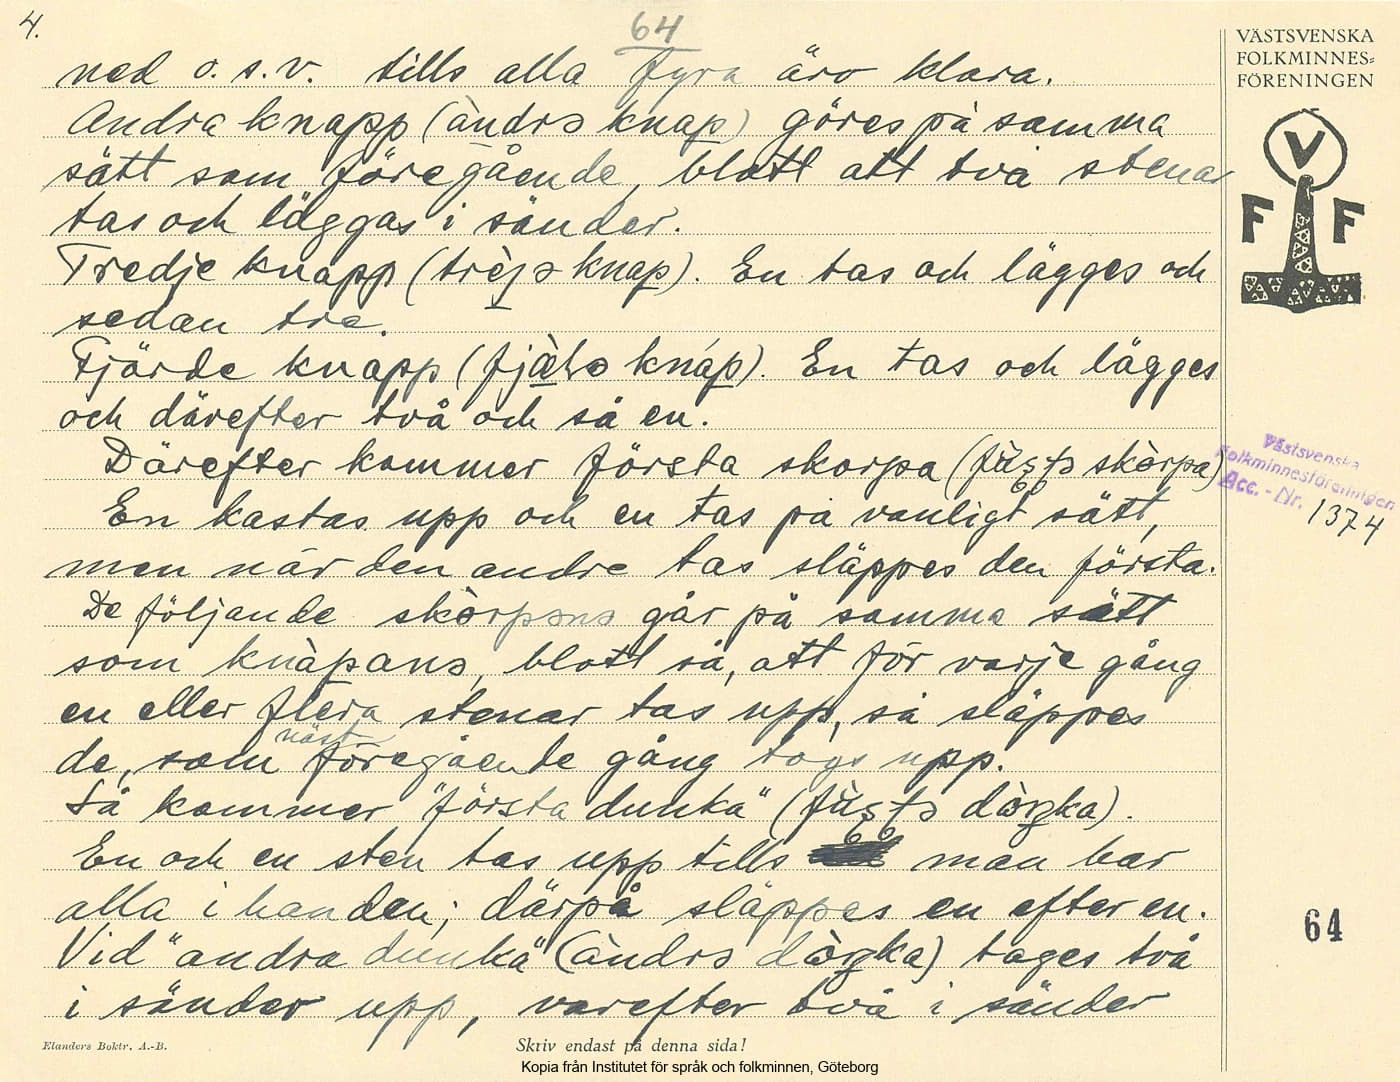 4.
64
ned o.s.v. tills alla fyra äro klara.
Andra knapp (àndrə knap) göres på samma
sätt som föregående, blott att två stenar
tas och läggas i sänder.
Tredje knapp (trèjə knap). En tas och lägges och
sedan tre.
Fjärde knapp (fjæ̀ɭə knap). En tas och lägges
och därefter två och så en.
Därefter kommer första skorpa (fùʂʈə skòrpa)
En kastas upp och en tas på vanligt sätt,
men när den andre tas släppes den första.
De följande skòrpənə går på samma sätt
som knàpanə, blott så, att för varje gång
en eller flera stenar tas upp, så släppes
de, som näst föregående gång togs upp.
Så kommer "första dunka" (fùʂʈə dòŋka).
En och en sten tas upp tills man har
alla i handen; därpå släppes en efter en.
Vid "andra dunka" (àndrə dòŋka) tages två
i sänder upp, varefter två i sänder
VÄSTSVENSKA
FOLKMINNES=
FÖRENINGEN
V
F F
Västsvenska
Folkminnesföreningen
Acc. - Nr. 1374
64
Elanders Boktr. A.-B.
Skriv endast på denna sida!
Kopia från Institutet för språk och folkminnen, Göteborg